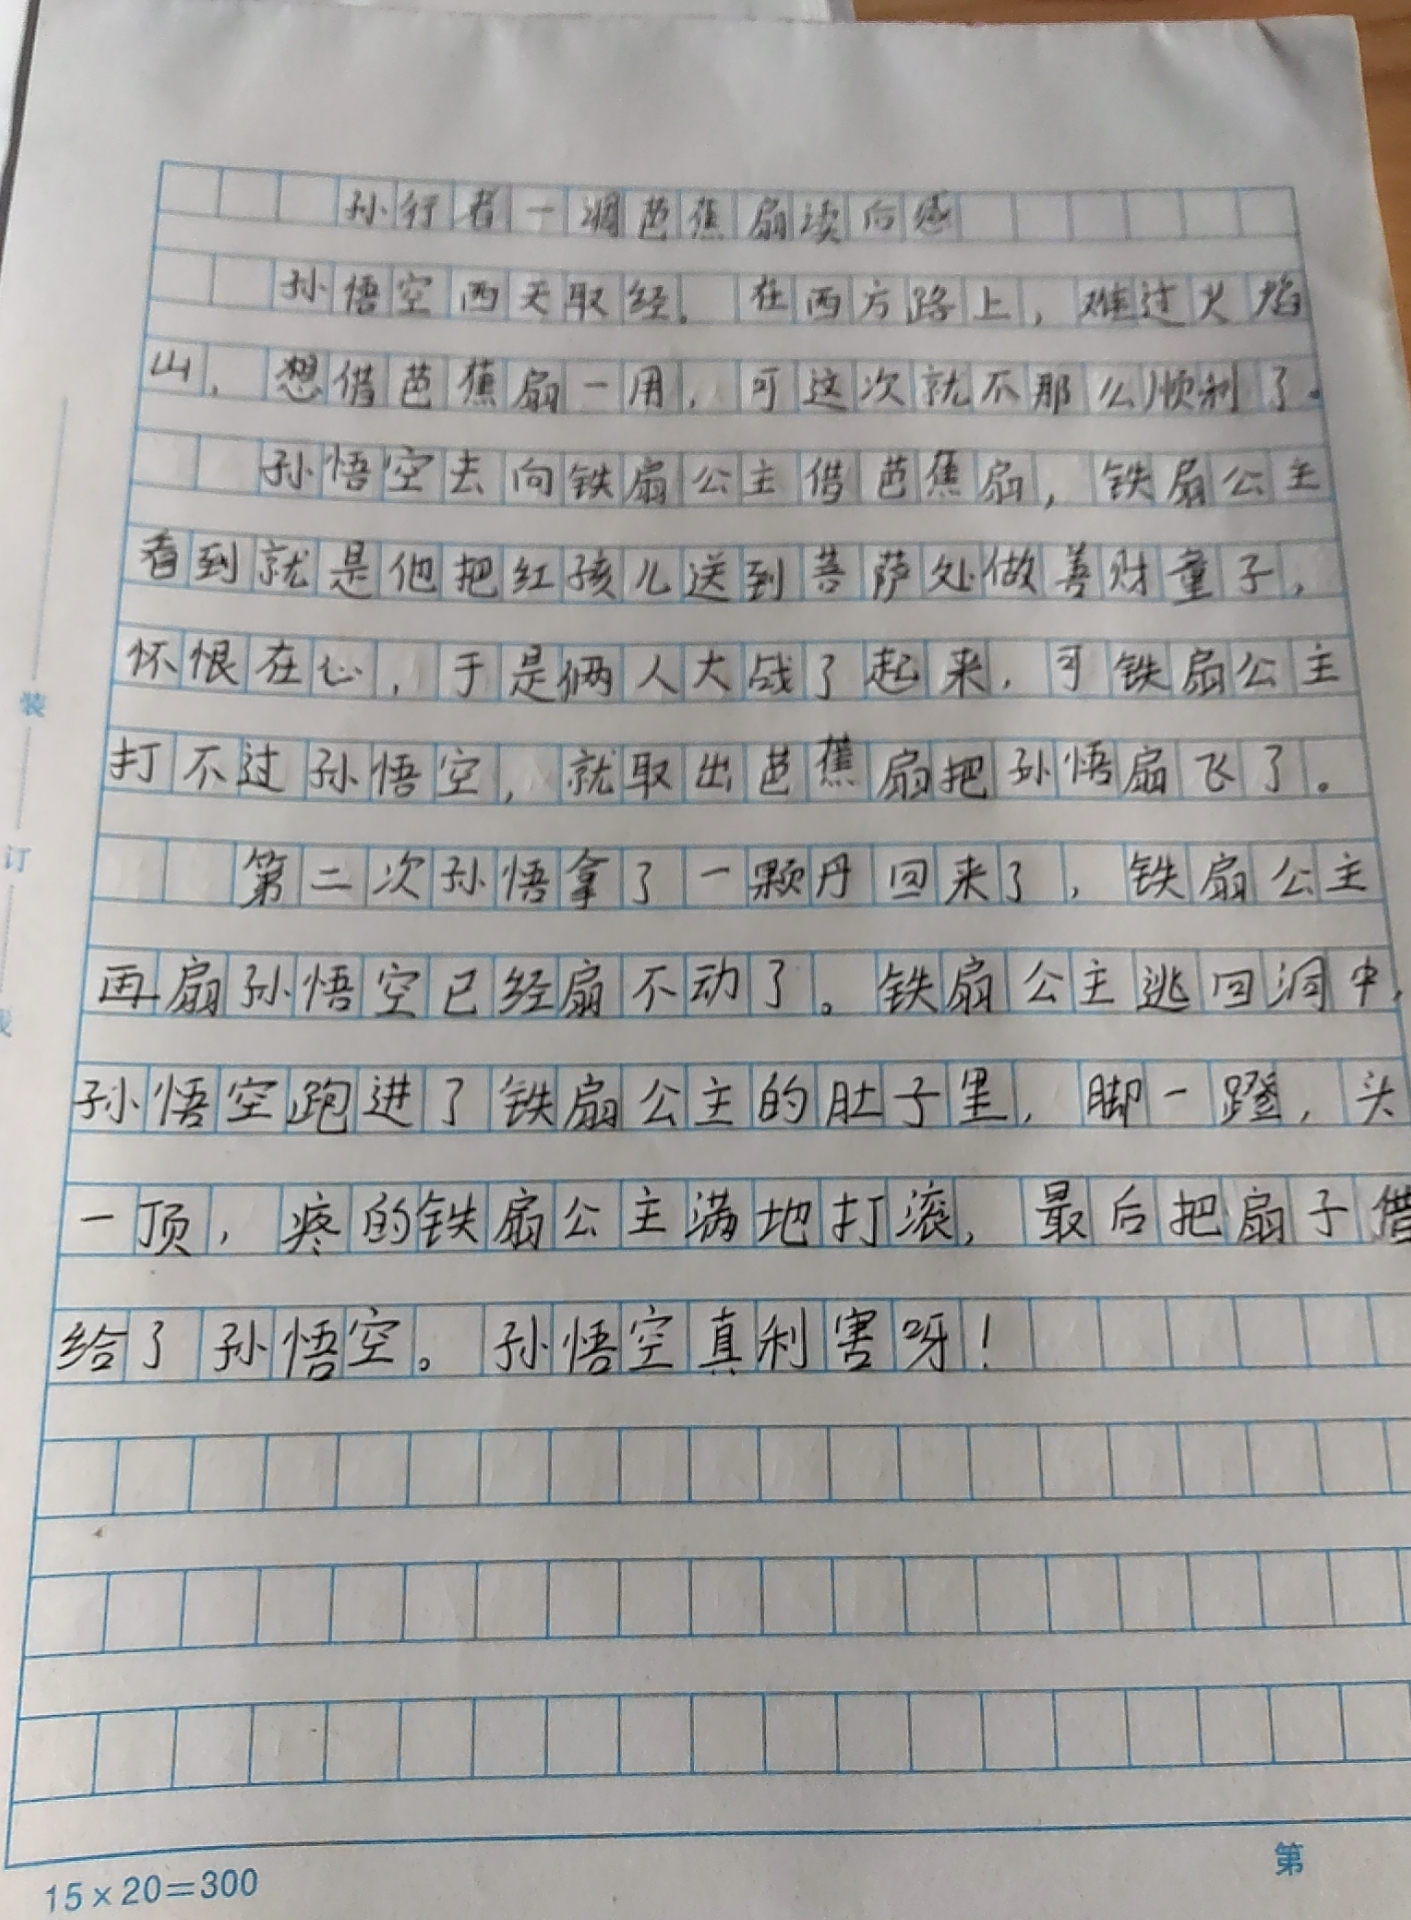 孙行者一调芭蕉扇读后感
孙悟空西天取经，在西方路上，难过火焰
山，想借芭蕉扇一用，可这次就不那么顺利了。
孙悟空去向铁扇公主借芭蕉扇，铁扇公主
看到就是他把红孩儿送到菩萨处做善财童子，
怀恨在心，于是俩人大战了起来，可铁扇公主
打不过孙悟空，就取出芭蕉扇把孙悟扇飞了。
第二次孙悟拿了一颗丹回来了，铁扇公主
再扇孙悟空已经扇不动了。铁扇公主逃回洞中，
孙悟空跑进了铁扇公主的肚子里，脚一蹬，头
一顶，疼的铁扇公主满地打滚，最后把扇子借
给了孙悟空。孙悟空真利害呀！
装
订
15×20=300
第